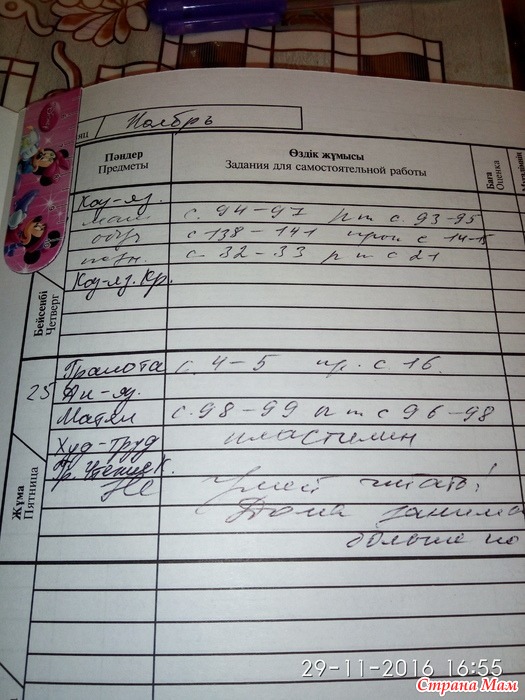 Ноябрь
Пәндер
Предметы
Өздік жұмысы
Задания для самостоятельной работы
Баға
Оценка
Каз-яз.
мат с. 94-97 р т с. 93-95
обуч с 138-141 проп с 14-15
позн. с 32-33 р т с 21
Каз-яз. Кр.
Бейсенбі
Четверг
25
Грамота с. 4-5 пр. с. 16.
Ан-яз.
Матем с. 98-99 р т с 96-98
Худ-труд пластилин
Жұма
Пятница
Не умеет читать!
Дома занима
больше по
29-11-2016 16:55
Страна Мам